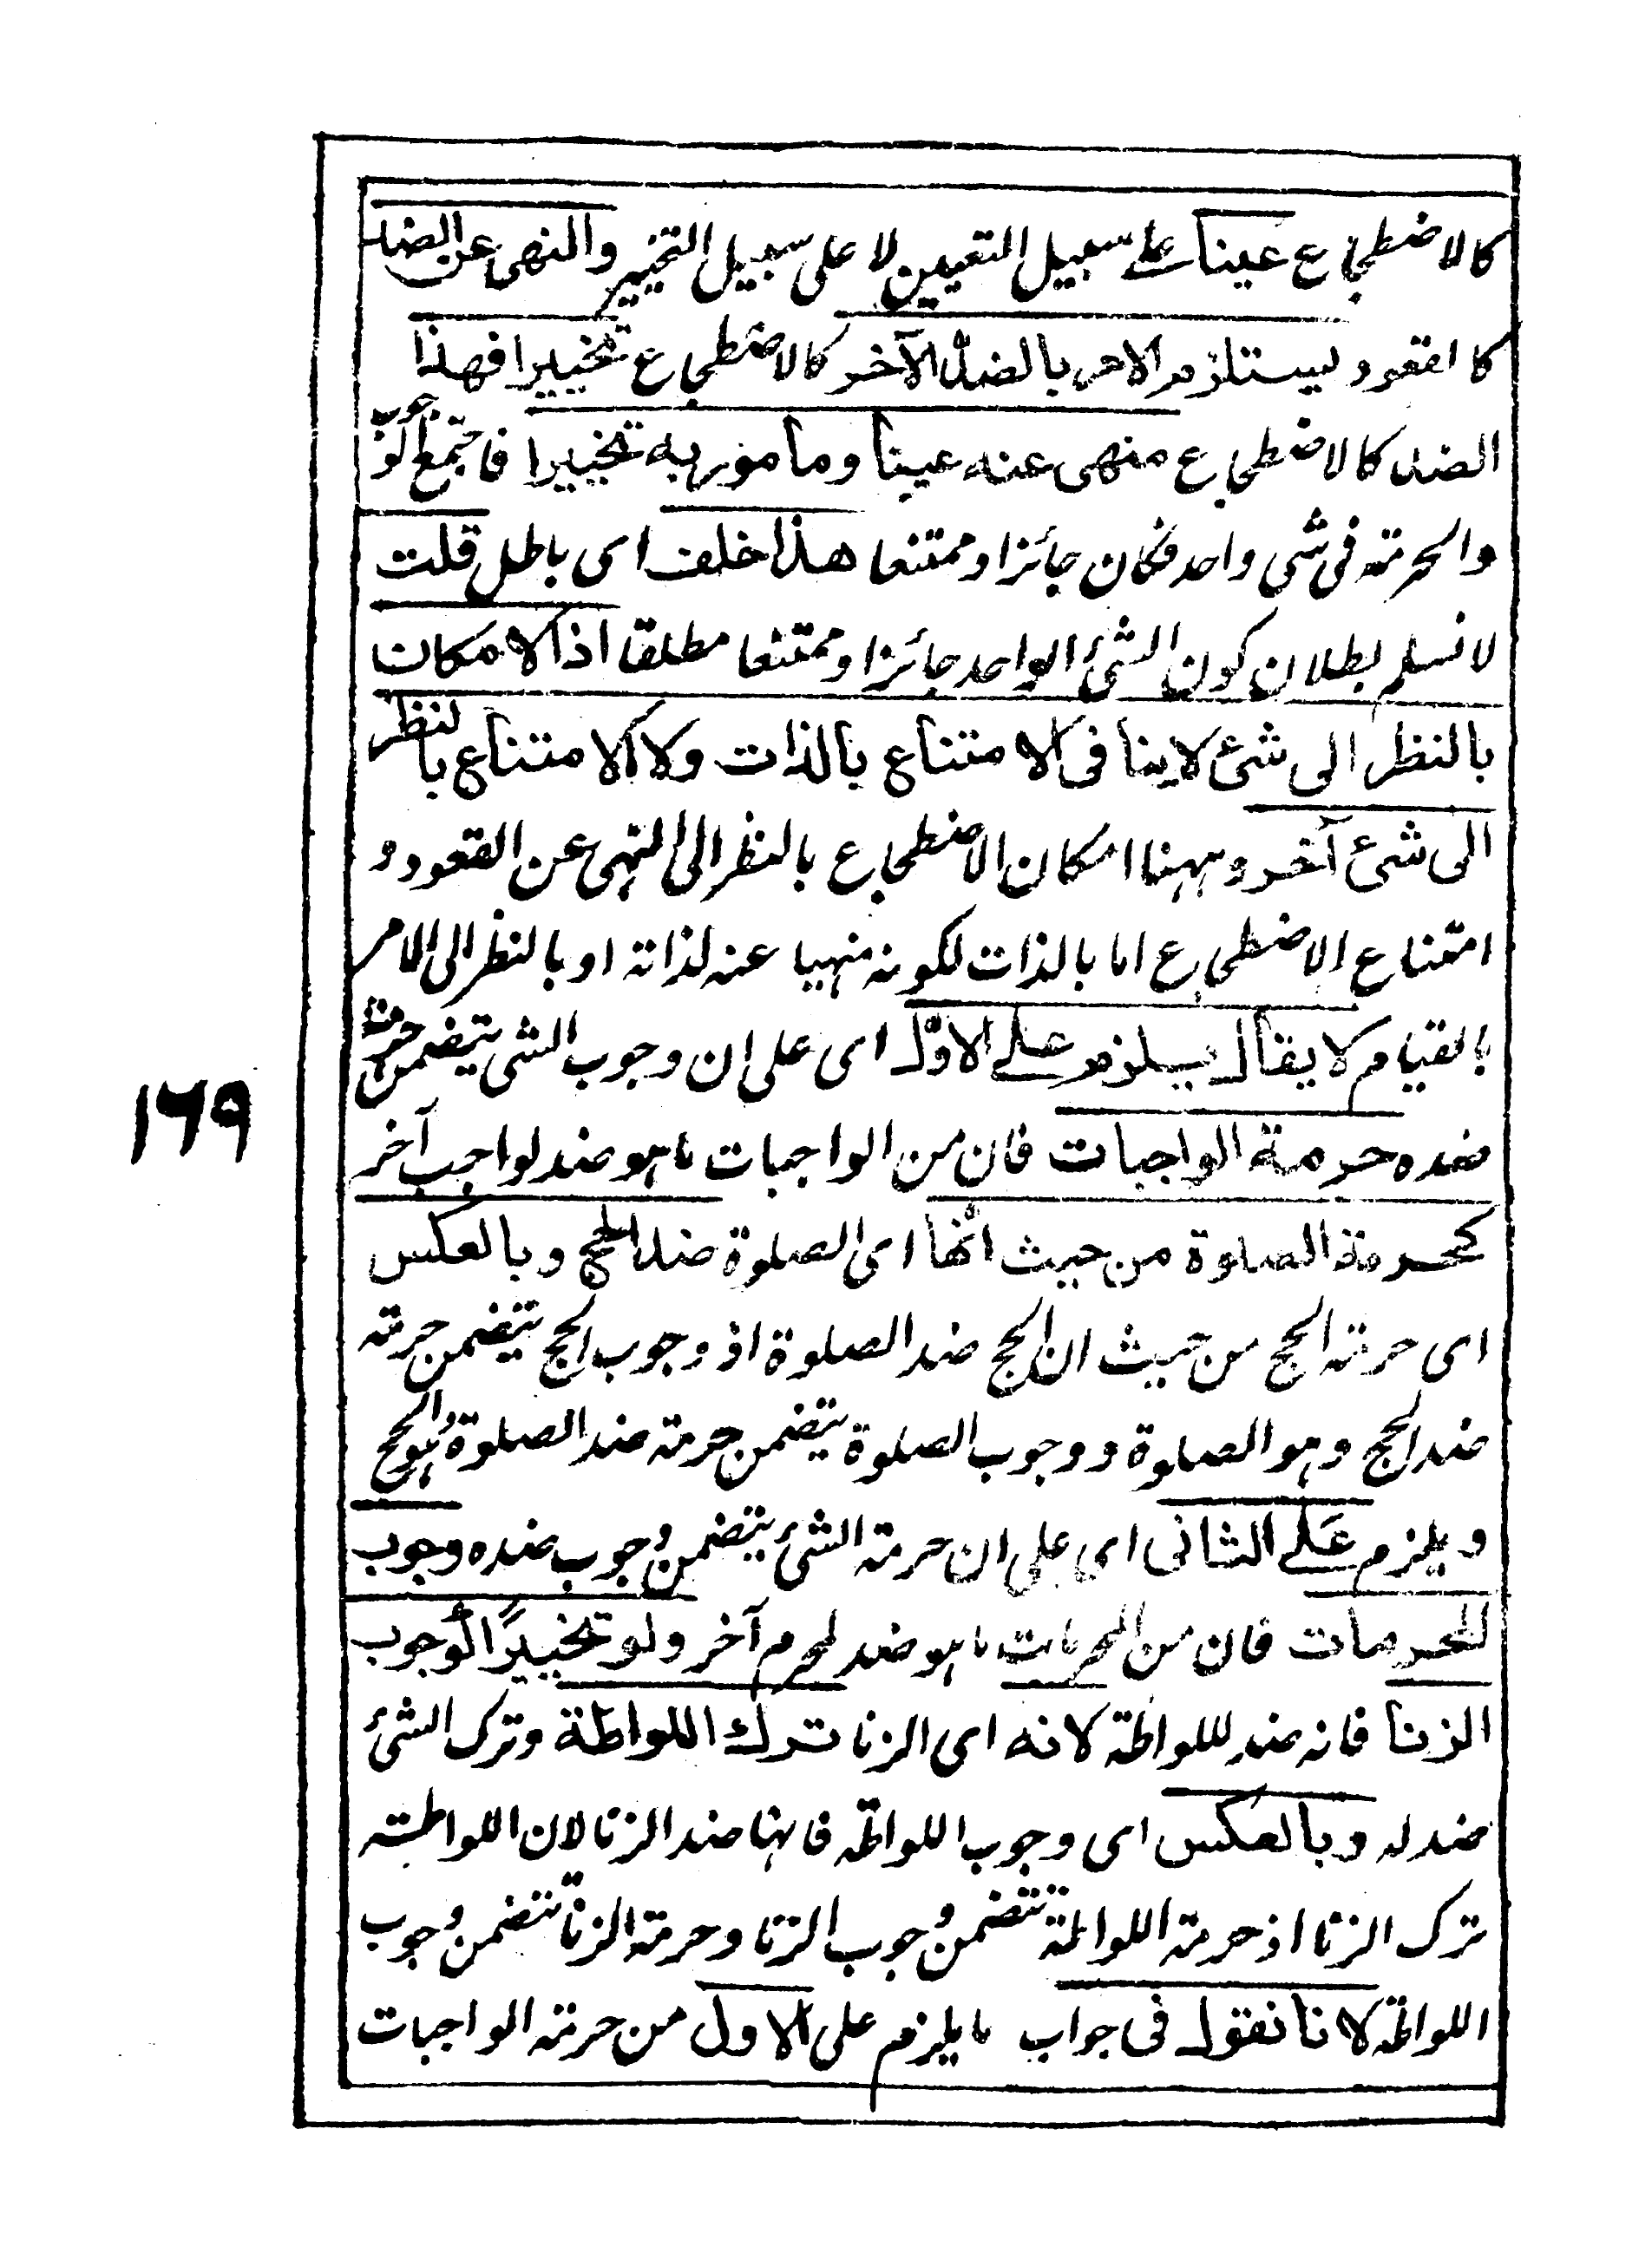 كالاضطجاع عينا على سبيل التعيين لا على سبيل التخيير والنهى عن الضد
كالقعود يستلزم الامر بالضد الآخر كالاضطجاع تخييرا فهذا
الضد كالاضطجاع منهى عنه عينا ومامور به تخييرا فاجتمع الوجوب
والحرمة فى شى واحد فكان جائزا وممتنعا هذا خلف اى باطل قلت
لا نسلم بطلان كون الشئ الواحد جائزا وممتنعا مطلقا اذ الامكان
بالنظر الى شئ لا ينافى الامتناع بالذات ولا الامتناع بالنظر
الى شئ آخر وههنا امكان الاضطجاع بالنظر الى النهى عن القعود و
امتناع الاضطجاع اما بالذات لكونه منهيا عنه لذاته او بالنظر الى الامر
بالقيام لا يقال يلزم على الاول اى على ان وجوب الشى يتضمن حرمة
ضده حرمة الواجبات فان من الواجبات ما هو ضد لواجب آخر
كحرمة الصلوة من حيث انها اى الصلوة ضد الحج وبالعكس
اى حرمة الحج من حيث ان الحج ضد الصلوة اذ وجوب الحج يتضمن حرمة
ضد الحج وهو الصلوة ووجوب الصلوة يتضمن حرمة ضد الصلوة وهو الحج
ويلزم على الثانى اى على ان حرمة الشئ يتضمن وجوب ضده وجوب
المحرمات فان من المحرمات ما هو ضد لمحرم آخر ولو تخييرًا كوجوب
الزنا فانه ضد للواطة لانه اى الزنا ترك اللواطة وترك الشئ
ضد له وبالعكس اى وجوب اللواطة فانها ضد الزنا لان اللواطة
ترك الزنا اذ حرمة اللواطة تتضمن وجوب الزنا وحرمة الزنا تتضمن وجوب
اللواطة لانا نقول فى جواب ما يلزم على الاول من حرمة الواجبات
١٦٩